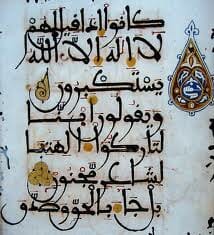 كانوا اذا قيل لهم
لا اله الا الله
يستكبرون
ويقولون اينا
لتاركوا الهتنا
لشاعر مجنون
بل جا بالحق وصدق